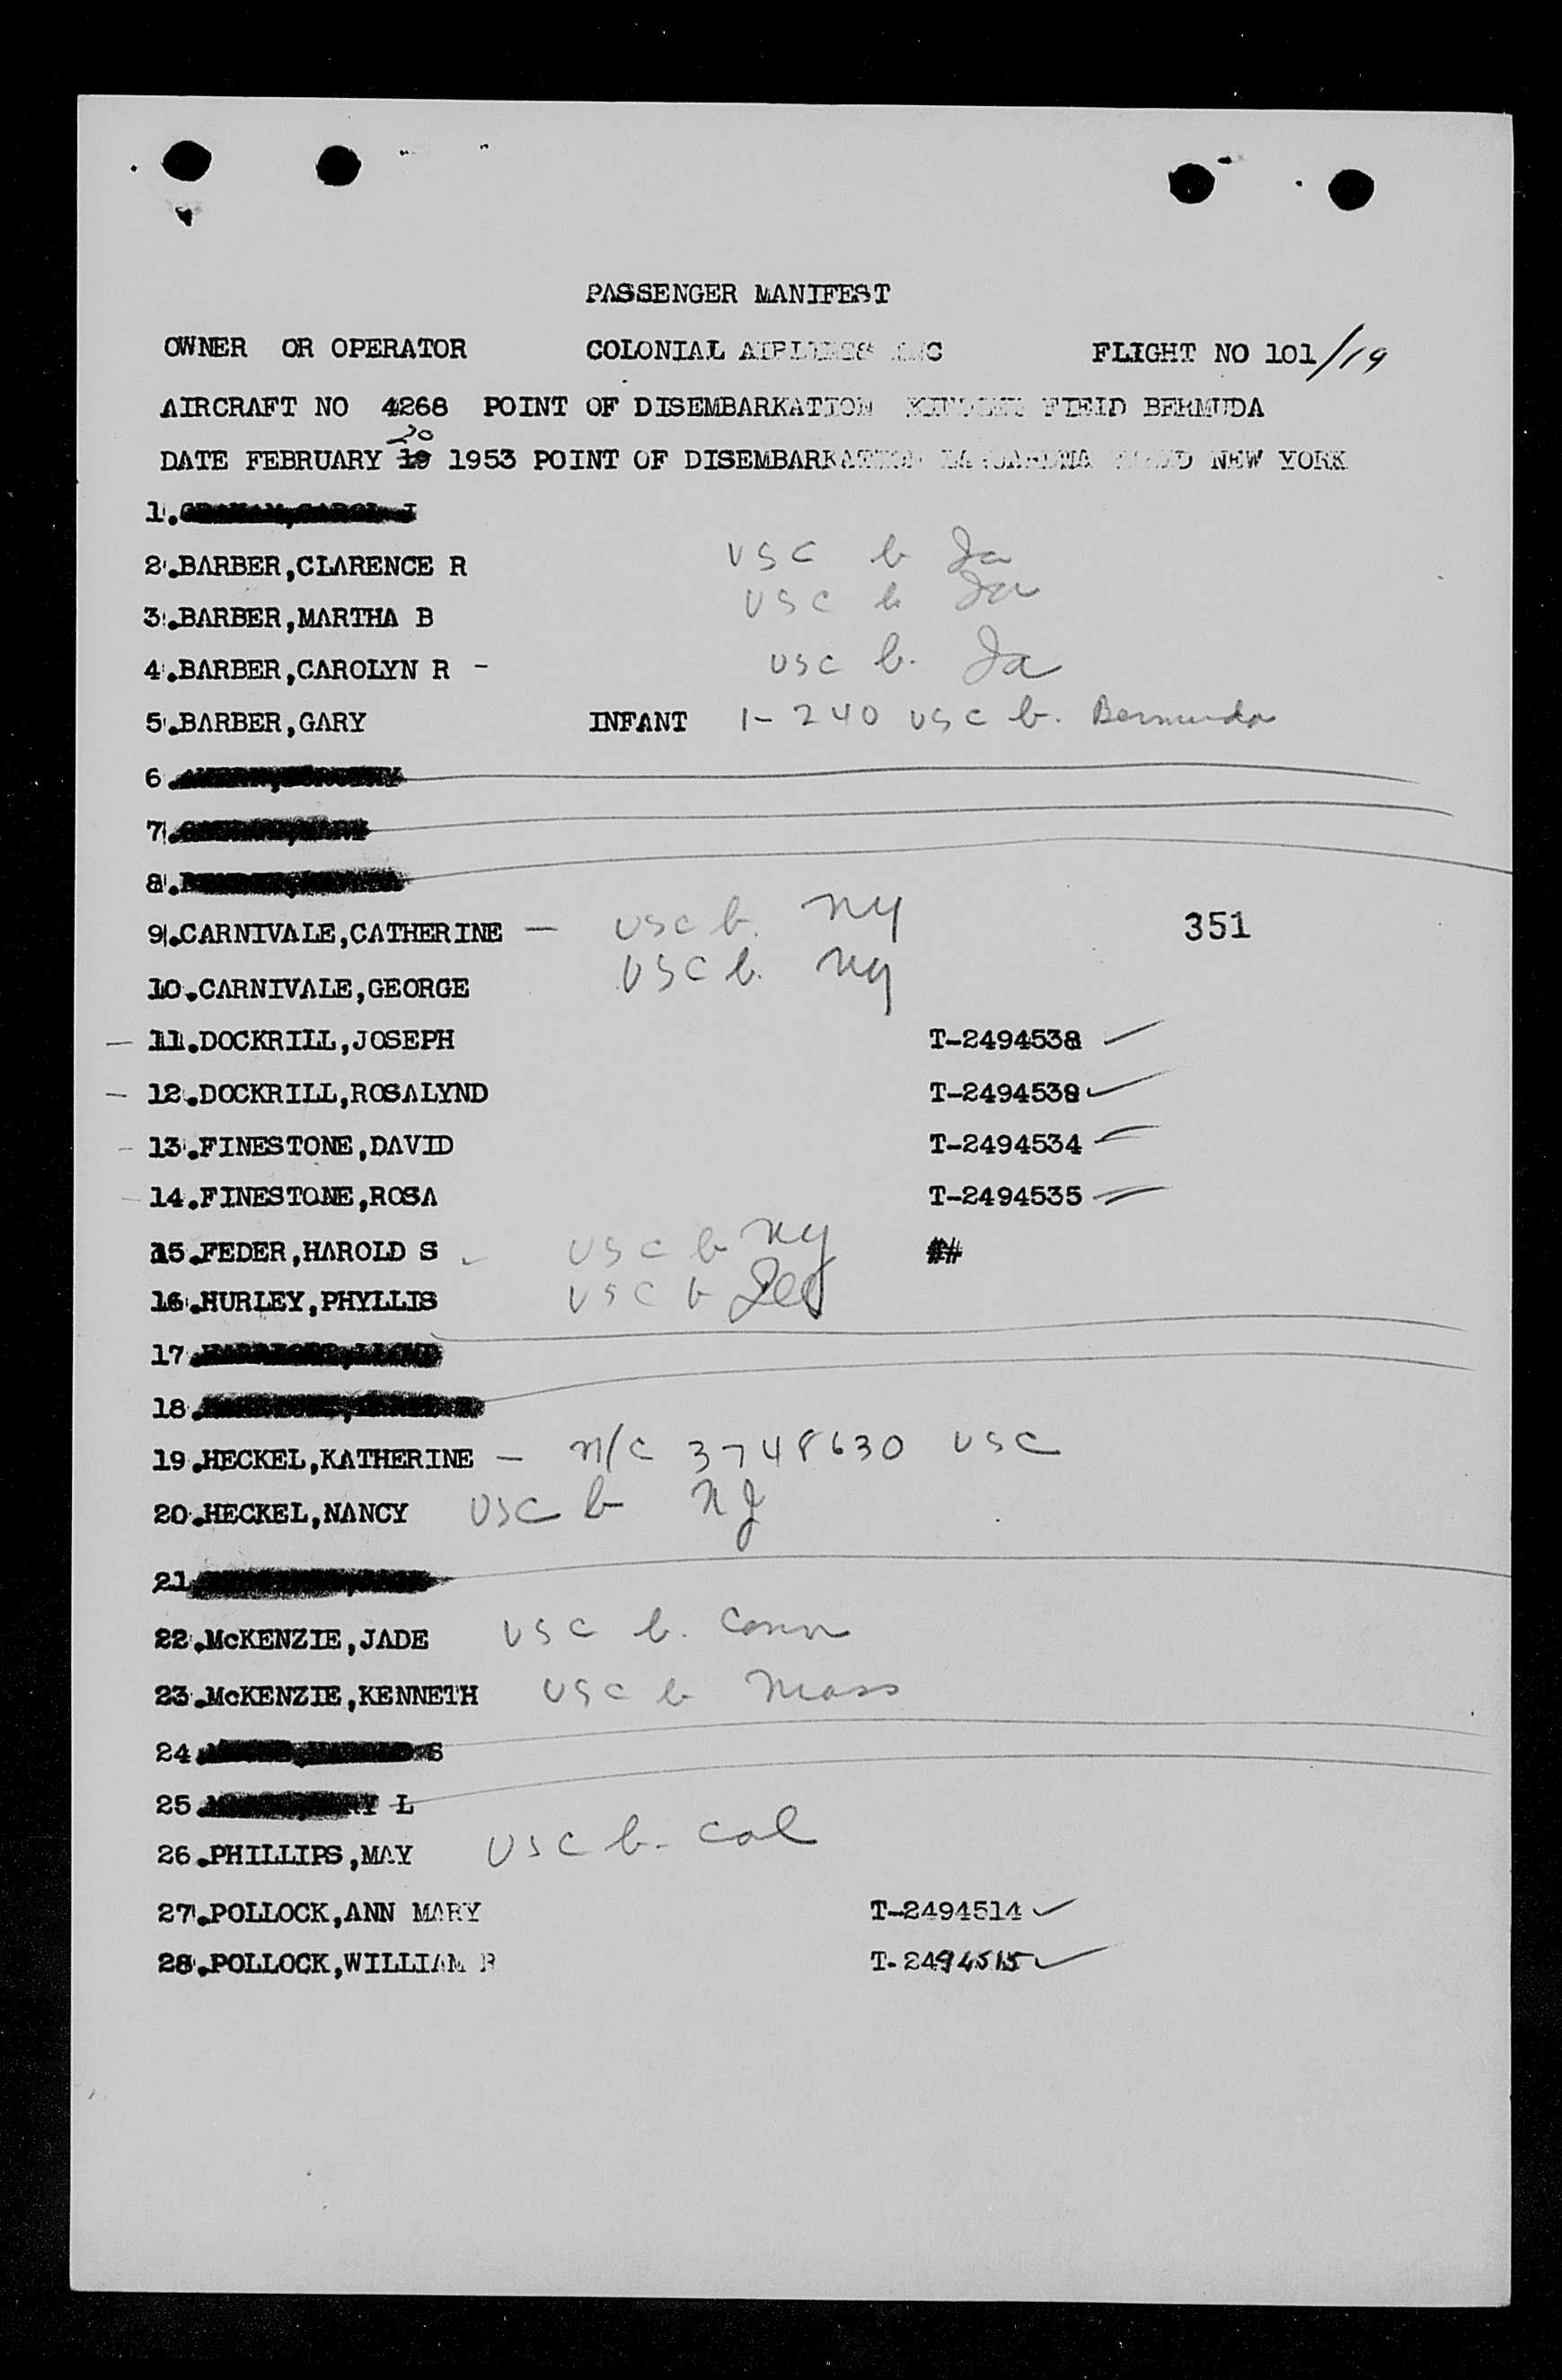 PASSENGER MANIFEST
OWNER OR OPERATOR COLONIAL AIRLINES INC FLIGHT NO 101/19
AIRCRAFT NO 4268 POINT OF DISEMBARKATION KINDLEY FIELD BERMUDA
20
DATE FEBRUARY 19 1953 POINT OF DISEMBARKATION LA GUARDIA FIELD NEW YORK
1.
2.BARBER,CLARENCE R USC b Ia
3.BARBER,MARTHA B USC b Ia
4.BARBER,CAROLYN R - USC b. Ia
5.BARBER,GARY INFANT 1-240 USC b. Bermuda
6
7.
8.
9.CARNIVALE,CATHERINE — USC b. NY 351
10.CARNIVALE,GEORGE USC b. NY
— 11.DOCKRILL,JOSEPH T-2494538
— 12.DOCKRILL,ROSALYND T-2494539
- 13.FINESTONE,DAVID T-2494534
- 14.FINESTONE,ROSA T-2494535
15.FEDER,HAROLD S USC b NY ##
16.HURLEY,PHYLLIS USC b
17.
18.
19.HECKEL,KATHERINE — N/C 3748630 USC
20.HECKEL,NANCY USC b NJ
21
22.McKENZIE,JADE USC b. Conn
23.McKENZIE,KENNETH USC b Mass
24. S
25. L
26.PHILLIPS,MAY USC b. Cal
27.POLLOCK,ANN MARY T-2494514
28.POLLOCK,WILLIAM R T-2494515